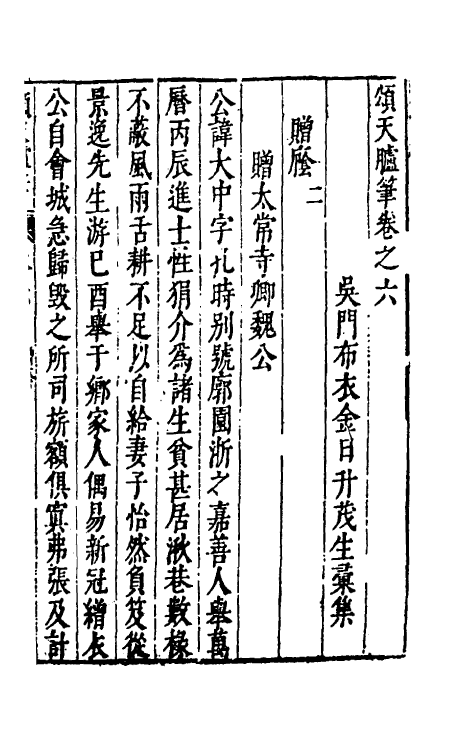 頌天臚筆卷之六
吳門布衣金日升茂生彙集
贈廕二
贈太常寺卿魏公
公諱大中字孔時别號廓園浙之嘉善人舉萬
曆丙辰進士性狷介爲諸生貧甚居湫巷數椽
不蔽風雨舌耕不足以自給妻子怡然負笈從
景逸先生游己酉舉于鄉家人偶易新冠繒衣
公自會城急歸毀之所司旂額俱寘弗張及計